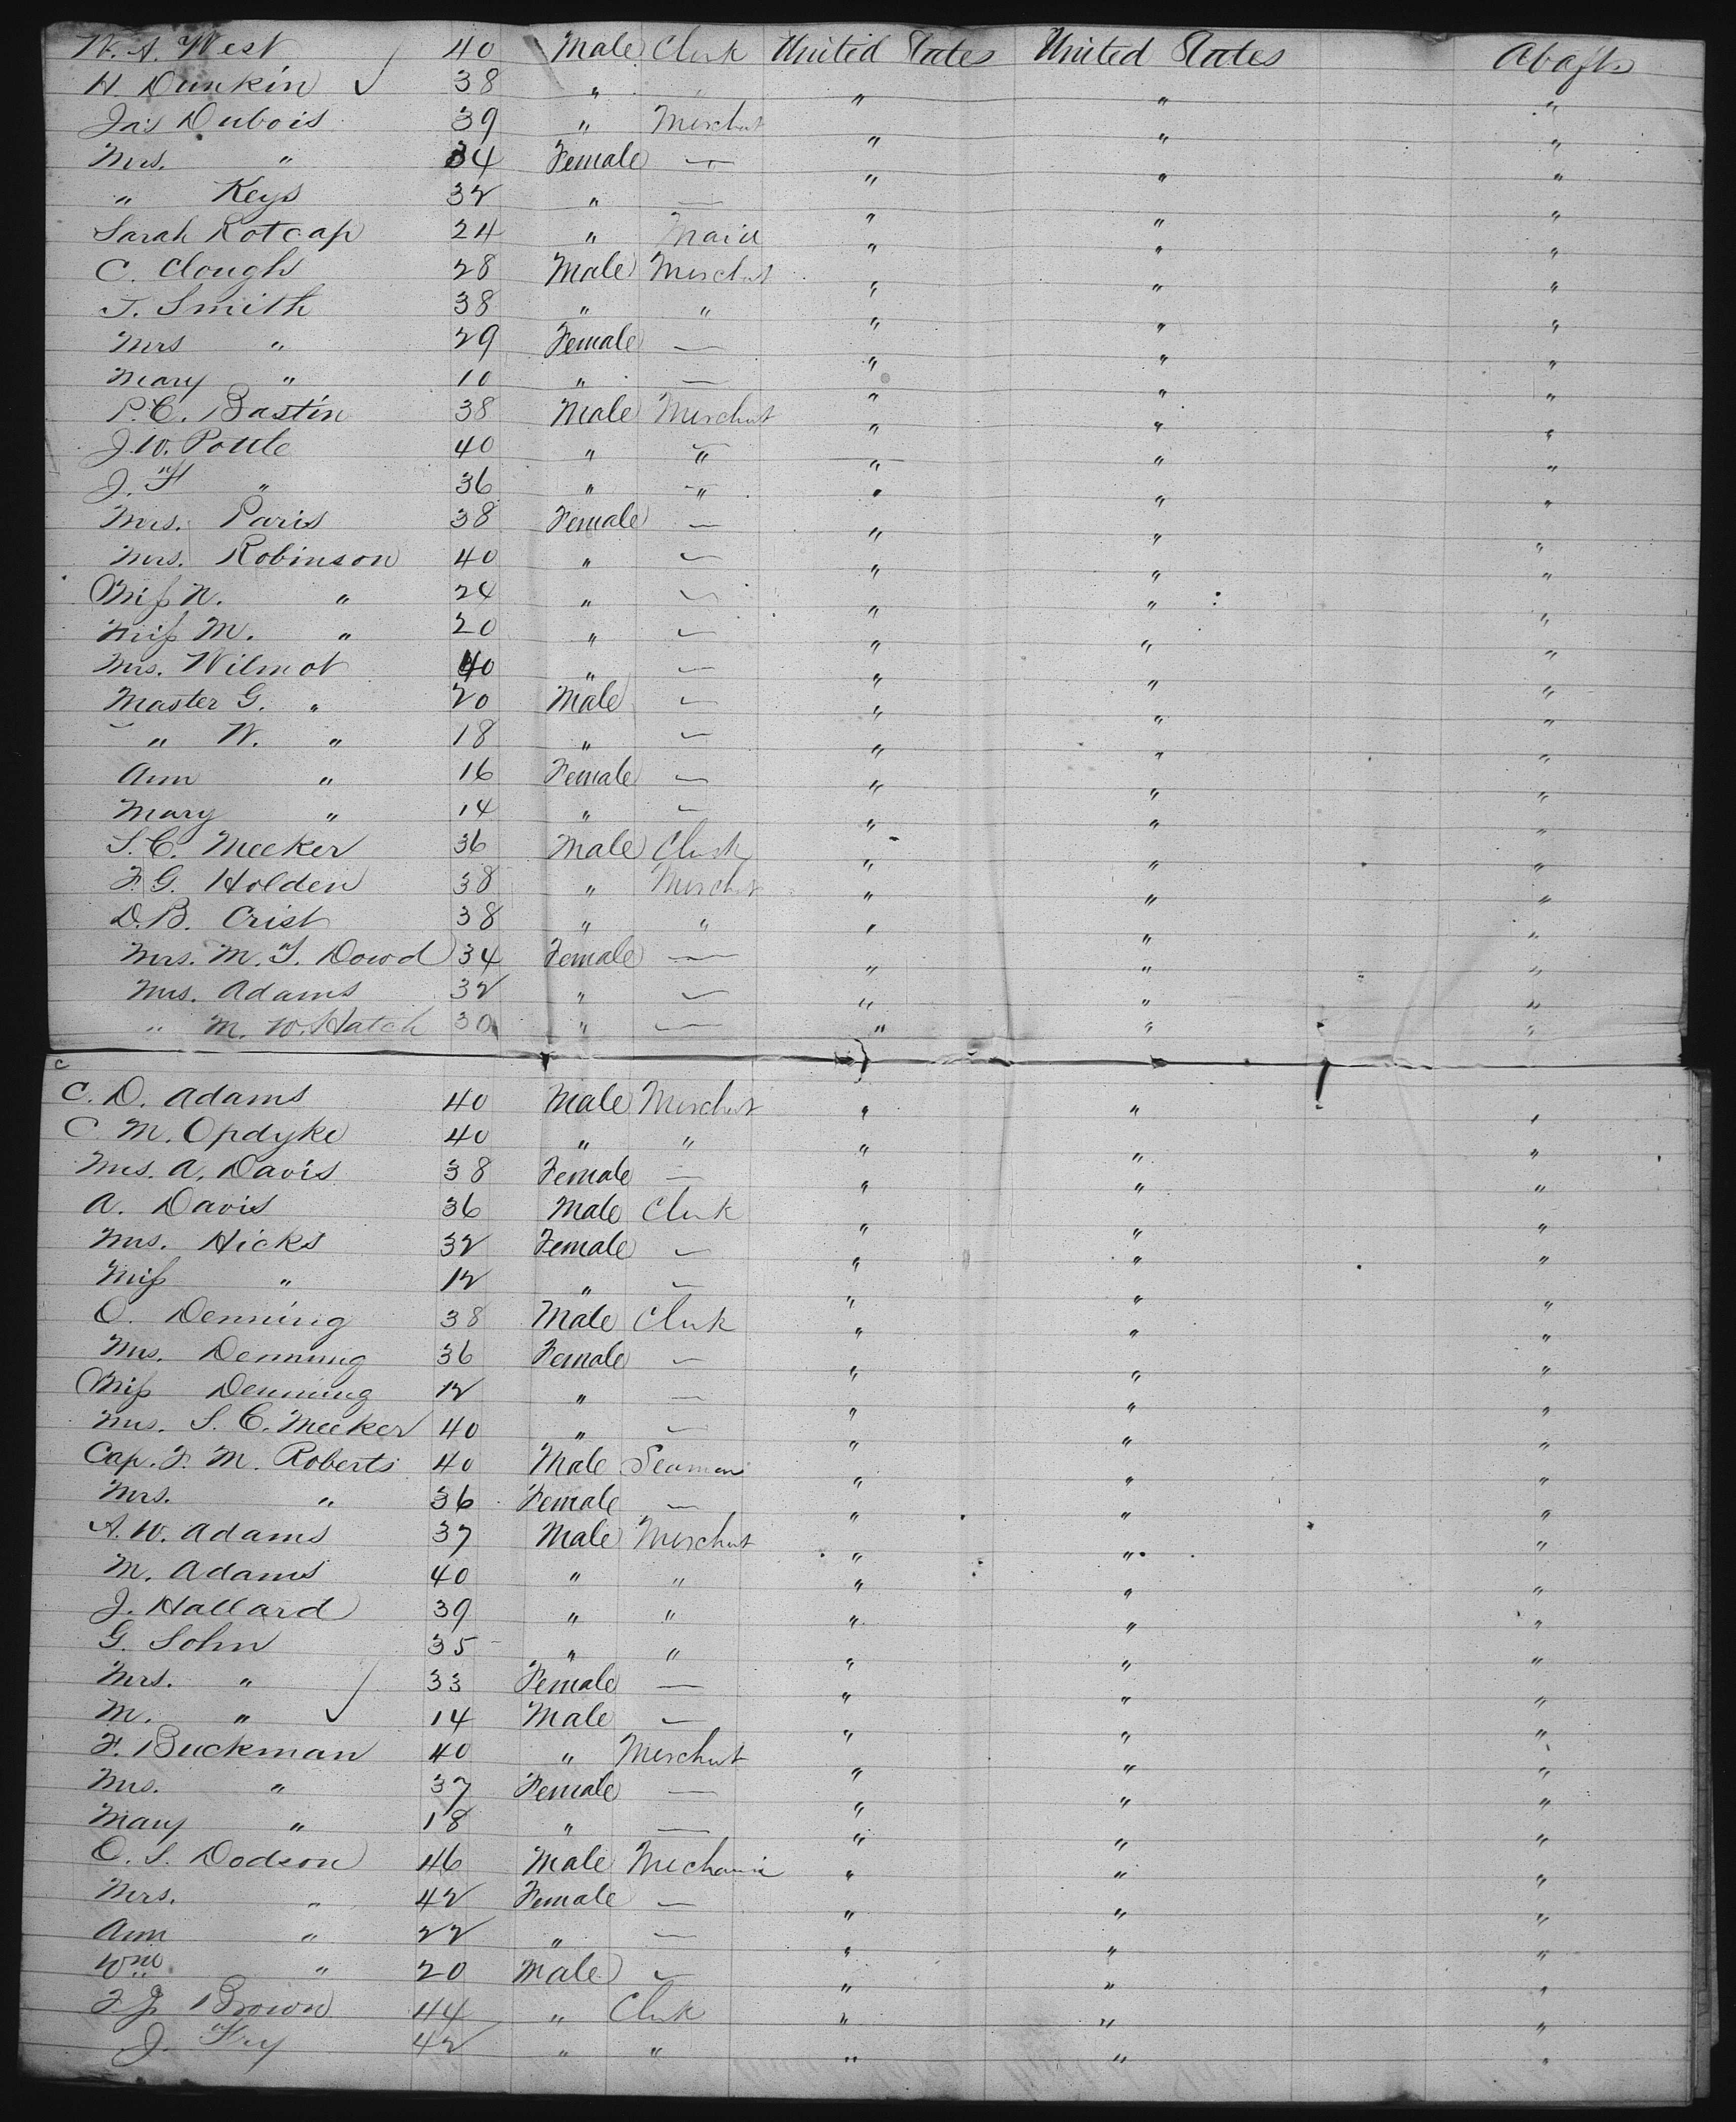 W. A. West 40 Male Clerk United States United States Abaft
H. Dunkin 38 " " " " "
Jas Dubois 39 " Merchut " " "
Mrs. " 34 Female — " " "
" Keys 32 " — " " "
Sarah Rotcap 24 " Maid " " "
C. Clough 28 Male Merchut " " "
T. Smith 38 " " " " "
Mrs " 29 Female — " " "
Mary " 10 " — " " "
P.C. Bastin 38 Male Merchut " " "
J. W. Pottle 40 " " " " "
J. F " 36 " " " " "
Mrs. Paris 38 Female — " " "
Mrs. Robinson 40 " — " " "
Miss N. " 24 " — " " "
Miss M. " 20 " — " " "
Mrs. Wilmot 40 " — " " "
Master G. " 20 Male — " " "
" W. " 18 " — " " "
Ann " 16 Female — " " "
Mary " 14 " — " " "
S. C. Meeker 36 Male Clerk " " "
F. G. Holden 38 " Merchut " " "
D. B. Crist 38 " " " " "
Mrs. M. T. Dowd 34 Female — " " "
Mrs. Adams 32 " — " " "
" M. W. Hatch 30 " — " " "
C. D. Adams 40 Male Merchut " " "
C. M. Opdyke 40 " " " " "
Mrs. A. Davis 38 Female — " " "
A. Davis 36 Male Clerk " " "
Mrs. Hicks 32 Female — " " "
Miss " 12 " — " " "
O. Denning 38 Male Clerk " " "
Mrs. Denning 36 Female — " " "
Miss Denning 12 " — " " "
Mrs. S. C. Meeker 40 " — " " "
Cap. F. M. Roberts 40 Male Seaman " " "
Mrs. " 36 Female — " " "
A. W. Adams 37 Male Merchut " " "
M. Adams 40 " " " " "
J. Hallard 39 " " " " "
G. Sohn 35 " " " " "
Mrs. " 33 Female — " " "
M. " 14 Male — " " "
F. Buckman 40 " Merchut " " "
Mrs. " 37 Female — " " "
Mary " 18 " — " " "
O. S. Dodson 46 Male Mechanic " " "
Mrs. " 42 Female — " " "
Ann " 22 " — " " "
Wm " 20 Male — " " "
F J. Brown 44 " Clerk " " "
J. Fry 42 " " " " "